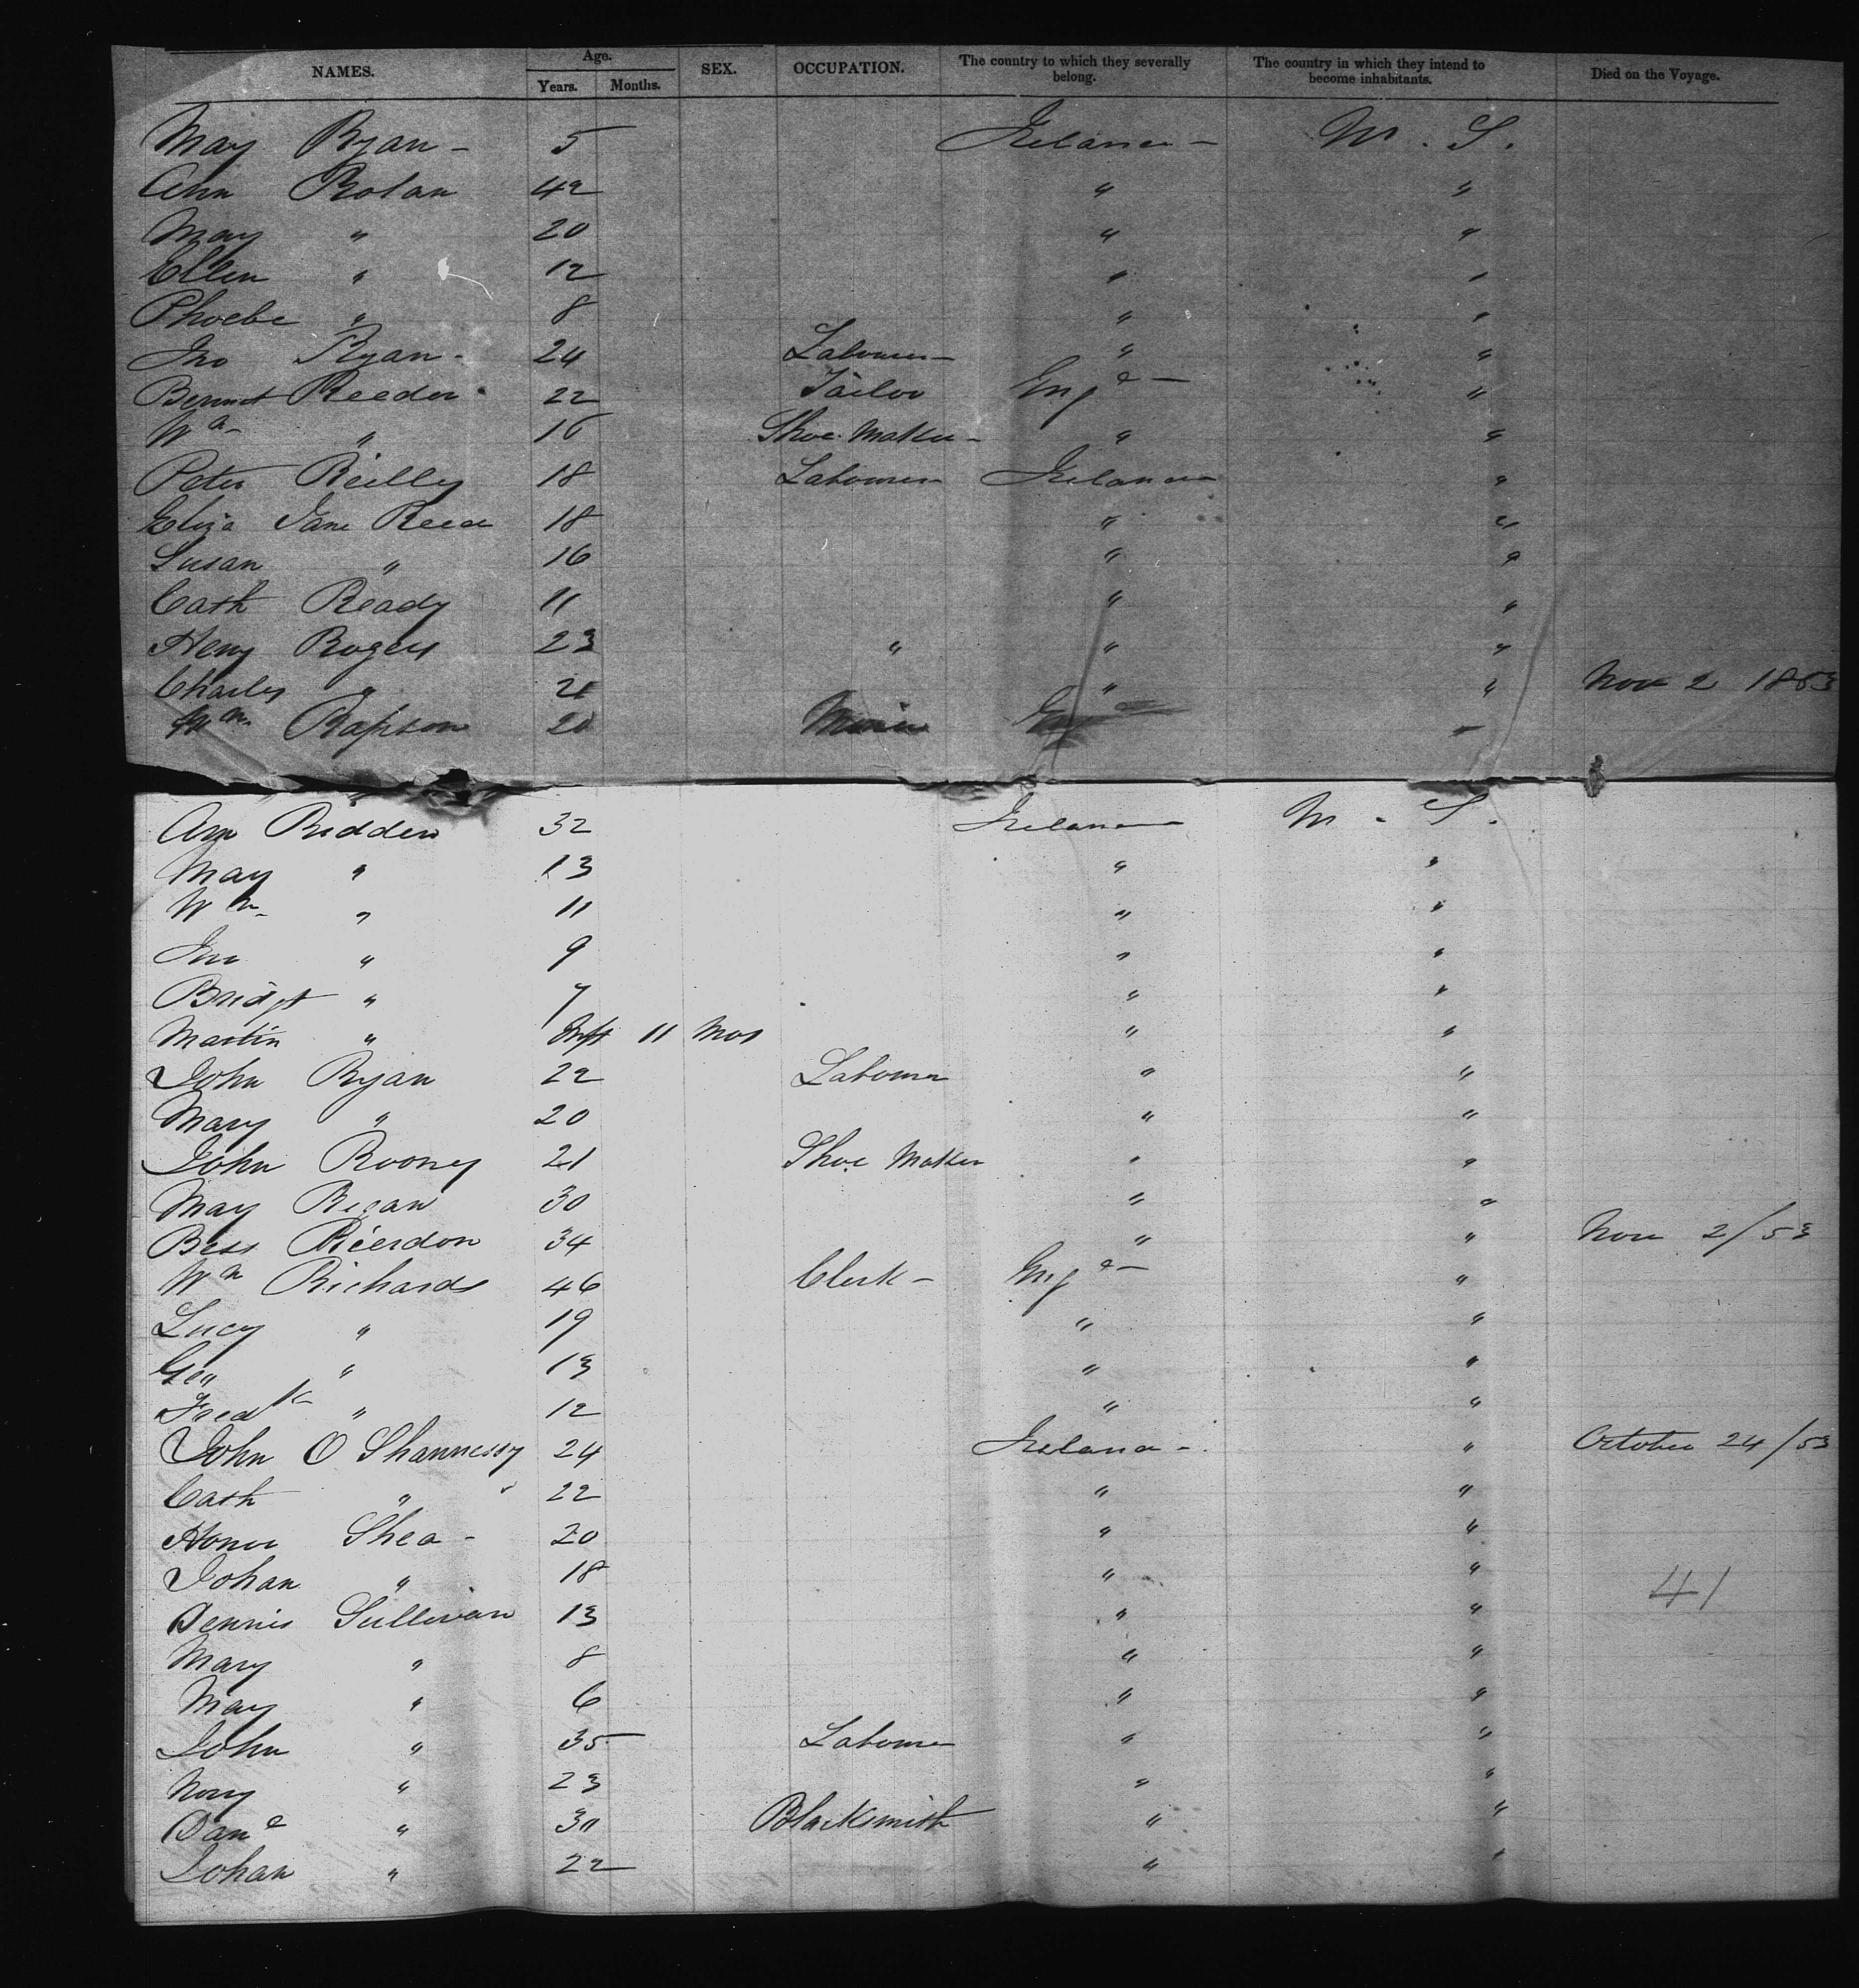 NAMES. Age. Years. Months. SEX. OCCUPATION. The country to which they severally belong. The country in which they intend to become inhabitants. Died on the Voyage.
May Ryan - 5 Ireland - U. S.
Ann Rolan 42 " "
May " 20 " "
Ellen " 12 " "
Phoebe " 8 " "
Jno Ryan - 24 Labourer - " "
Bennet Reeder 22 Tailor Engd - "
Wm " 16 Shoe Maker - " "
Peter Reilly 18 Labourer Ireland "
Eliza Jane Reed 18 " "
Susan " 16 " "
Cath Ready 11 " "
Heny Rogers 23 " " "
Charles " 21 " " Nov 2 1853
Wm Rapson 20 Miner Engd "
Ann Ridden 32 Ireland U. S.
May " 13 " "
Wm " 11 " "
Jno " 9 " "
Bridgt " 7 " "
Martin " Inft 11 Mos " "
John Ryan 22 Labourer " "
Mary " 20 " "
John Rooney 21 Shoe Maker " "
May Regan 30 " "
Bess Rierdon 34 " " Nov 2/53
Wm Richards 46 Clerk - Engd - "
Lucy " 19 " "
Geo " 13 " "
Fredk " 12 " "
John O Shannessy 24 Ireland - " October 24/53
Cath " 22 " "
Honor Shea - 20 " "
Johan " 18 " "
41
Dennis Sullivan 13 " "
Mary " 8 " "
May " 6 " "
John " 35 Labourer " "
Nory " 23 " "
Danl " 30 Blacksmith " "
Johan " 22 " "